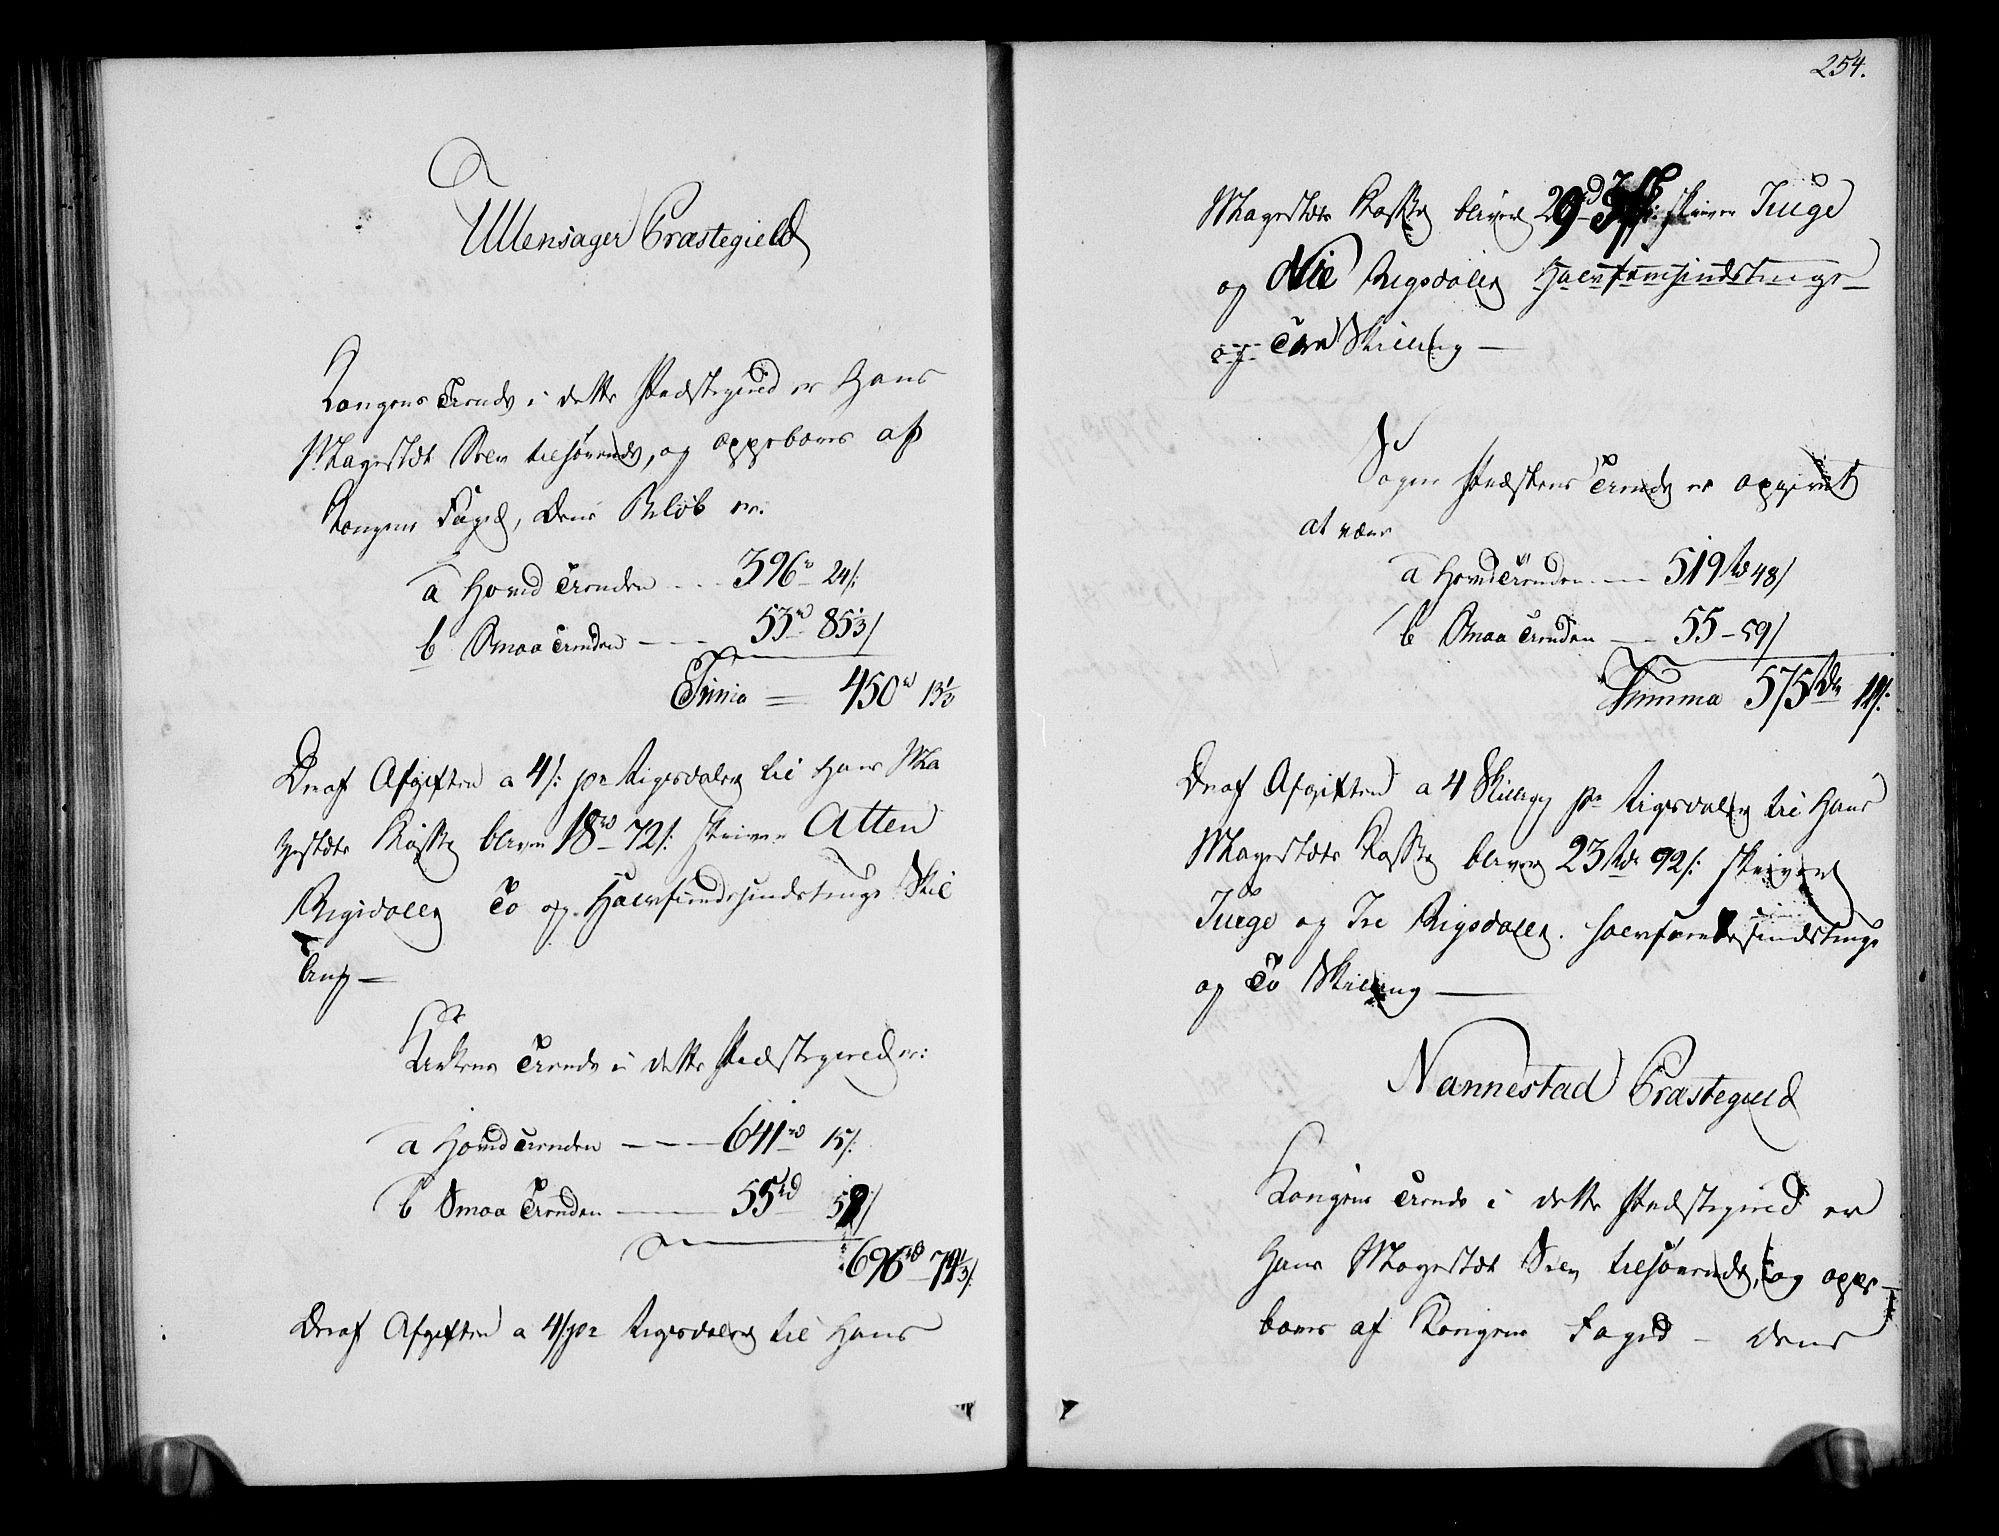 Ullensager Præstegield
Kongens Tiende i dette Præstegield er Hans
Mayestæt Selv tilhørende, og oppebæres af
Kongens Foged, dens Beløb er:
a Hoved Tienden - - - 396 rd 24 s:
b Smaa Tienden - - - 53 rd 85 1/3 s
Summa = 450 rd 13 1/3
Deraf Afgiften a 4 s: pr Rigsdaler til Hans Ma
yestæts Kasse bliver 18 rd 72 s: skriver Atten
Rigsdaler To og Halvfierdesindstiuge Skil
ling —
Kirkens Tiende i dette Præstegield er:
a Hoved Tienden - - - 641 rd 15 s:
b Smaa Tienden - - - 55 rd
696 rd
Deraf Afgiften a 4 s pr Rigsdaler til Hans
254.
Mayestæts Kasse bliver 29 rd skriver Tiuge
og Nie Rigsdaler
og Skilling —
Sogne Præstens Tiende er opgivet
at være
a Hoved Tienden - - - 519 rd 48 s
b Smaa Tienden - - - 55 - 59 s
Summa 575 rd 11 s:
Deraf Afgiften a 4 Skilling pr Rigsdaler til Hans
Mayestæts Kasse bliver 23 rd 92 s: skriver
Tiuge og Tre Rigsdaler halvfemtesindstiuge
og To Skilling —
Nannestad Præstegield
Kongens Tiende i dette Præstegield er
Hans Mayestæt Selv tilhørende, og oppe-
bæres af Kongens Foged - dens